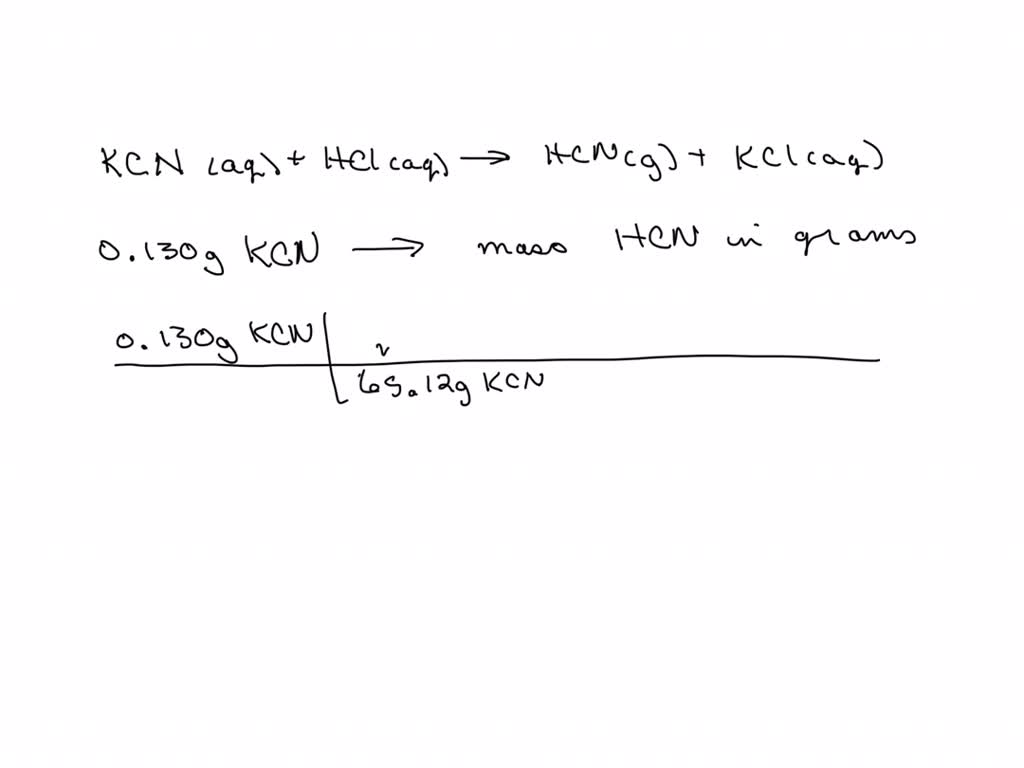 KCN (aq) + HCl (aq) → HCN (g) + KCl (aq)
0.130g KCN → mass HCN in grams
0.130g KCN
65.12g KCN